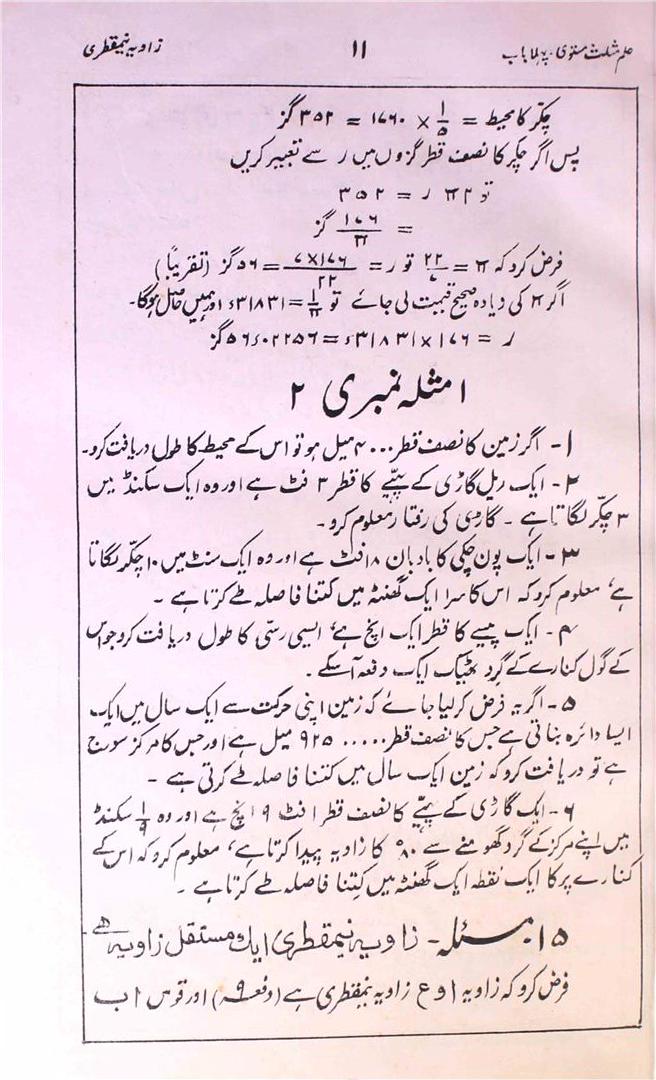 علم مثلث مستوی۔ پہلا باب ۱۱ زاویہ نیمقطری
چکر کا محیط = ۱/۵ × ۱۷۶۰ = ۳۵۲ گز
پس اگر چکر کا نصف قطر گزوں میں ر سے تعبیر کریں
تو ۲ π ر = ۳۵۲
= ۱۷۶/π گز
فرض کرو کہ π = ۲۲/۷ تو ر = ۷×۱۷۶/۲۲ = ۵۶ گز (تقریباً)
اگر π کی زیادہ صحیح قیمت لی جائے تو ۱/π = ۳۱۸۳۱ء اور ہمیں حاصل ہوگا۔
ر = ۱۷۶ × ۳۱۸۳۱ء = ۵۶ء۰۲۲۵۶ گز
امثلہ نمبری ۲
۱۔ اگر زمین کا نصف قطر ۴۰۰۰ میل ہو تو اس کے محیط کا طول دریافت کرو۔
۲۔ ایک ریل گاڑی کے پہیّے کا قطر ۳ فٹ ہے اور وہ ایک سکنڈ میں
۳ چکّر لگاتا ہے ۔ گاڑی کی رفتار معلوم کرو۔
۳۔ ایک پون چکی کا بادبان ۱۸ فٹ ہے اور وہ ایک منٹ میں ۱۰ چکر لگاتا
ہے، معلوم کرو کہ اس کا سرا ایک گھنٹہ میں کتنا فاصلہ طے کرتا ہے ۔
۴۔ ایک پیسے کا قطر ایک انچ ہے، ایسی رسّی کا طول دریافت کرو جو اس
کے گول کنارے کے گرد ٹھیک ایک دفعہ آسکے ۔
۵۔ اگر یہ فرض کر لیا جائے کہ زمین اپنی حرکت سے ایک سال میں ایک
ایسا دائرہ بناتی ہے جس کا نصف قطر ۹۲۵۰۰۰۰۰ میل ہے اور جس کا مرکز سورج
ہے تو دریافت کرو کہ زمین ایک سال میں کتنا فاصلہ طے کرتی ہے ۔
۶۔ ایک گاڑی کے پہیّے کا نصف قطر ۱ فٹ ۹ انچ ہے اور وہ ۱/۹ سکنڈ
میں اپنے مرکز کے گرد گھومنے سے ۸۰° کا زاویہ پیدا کرتا ہے، معلوم کرو کہ اس کے
کنارے پر کا ایک نقطہ ایک گھنٹہ میں کتنا فاصلہ طے کرتا ہے ۔
۱۵۔ مسئلہ۔ زاویہ نیمقطری ایک مستقل زاویہ ہے۔
فرض کرو کہ زاویہ ا و ع زاویہ نیمقطری ہے (دفعہ ۹) اور قوس ا ب